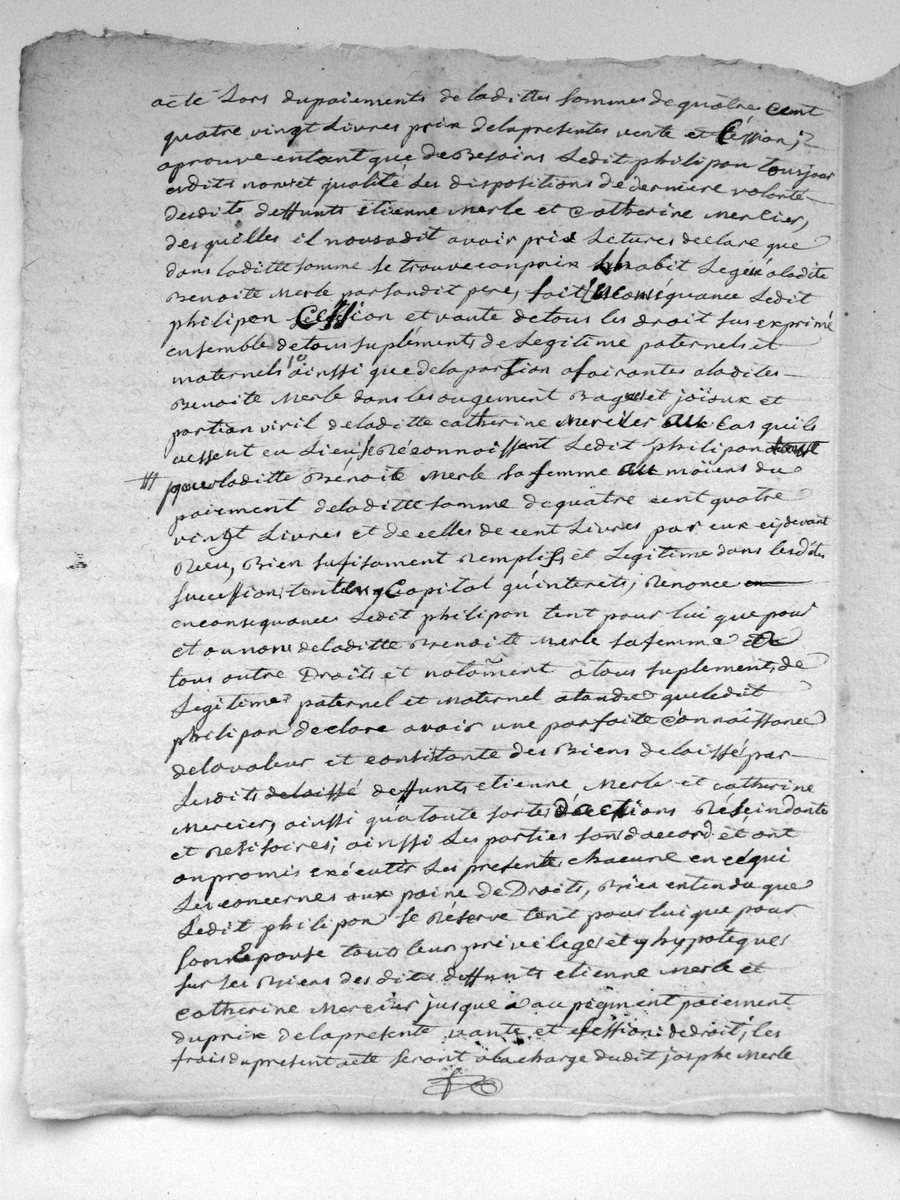 acte Lors du paiements de laditte somme de quatre cent
quatre vingt Livres prix de la presentes vente et Cession;
aprouve entant que de Besoins Ledit philipon tousjour
esdits nom et qualité Les dispositions de derniere volonté
desdits deffunts etienne Merle et Catherine Mercier,
des quelles il nousadit avoir prix Lectures declare que
dans laditte somme se trouve conprix Lhabit Legué a ladite
Benoite Merle par sondit pere, fait Ledit
philipon Cession et vante de tous les droit sus exprimé
ensemble de tous supléments de Legitime paternels et
maternels ainssi que de la portion afairantes a ladites
Benoite Merle dans les augement Bagues et joïoux et
portion viril de laditte catherine Mercier aux Cas quils
eussent eu Lieu, Réconnoissant Ledit philipon
pour laditte Benoite Merle sa femme au moïens du
paiement de laditte somme de quatre cent quatre
vingt Livres et de celles de cent Livres par eux cijdevant
Reçu, Bien sufisament Remplis et Legitime dans lesdites
succession; tent en Capital quinterets; Renonce en
enconsequances Ledit philipon tent pour lui que pour
et au nom de laditte Benoite Merle sa femme et a
tous autre Droits et notament a tous suplements de
Legitimes paternel et Maternel atandu queledit
philipon declare avoir une parfaite connoissance
de la valeur et consistante des Biens delaissé par
Lesdits delaissé deffunts etienne Merle et catherine
Mercier, ainssi qua toute sortes dactions Réscindantes
et Resisoires; ainssi Les parties son d'accord et ont
on promis exécutter Les presentes chacune en cequi
Les concernes aux paine de Droits, Bien entendu que
Ledit philipon se Réserve tent pour lui que pour
sonne Epouse tous leur privileges et hypoteques
sur les Biens des dits deffunts etienne Merle et
catherine Mercier jusque a au paiement
du prix de la presente vante et cession de droit; les
frais du present acte seront a la charge dudit josephe Merle